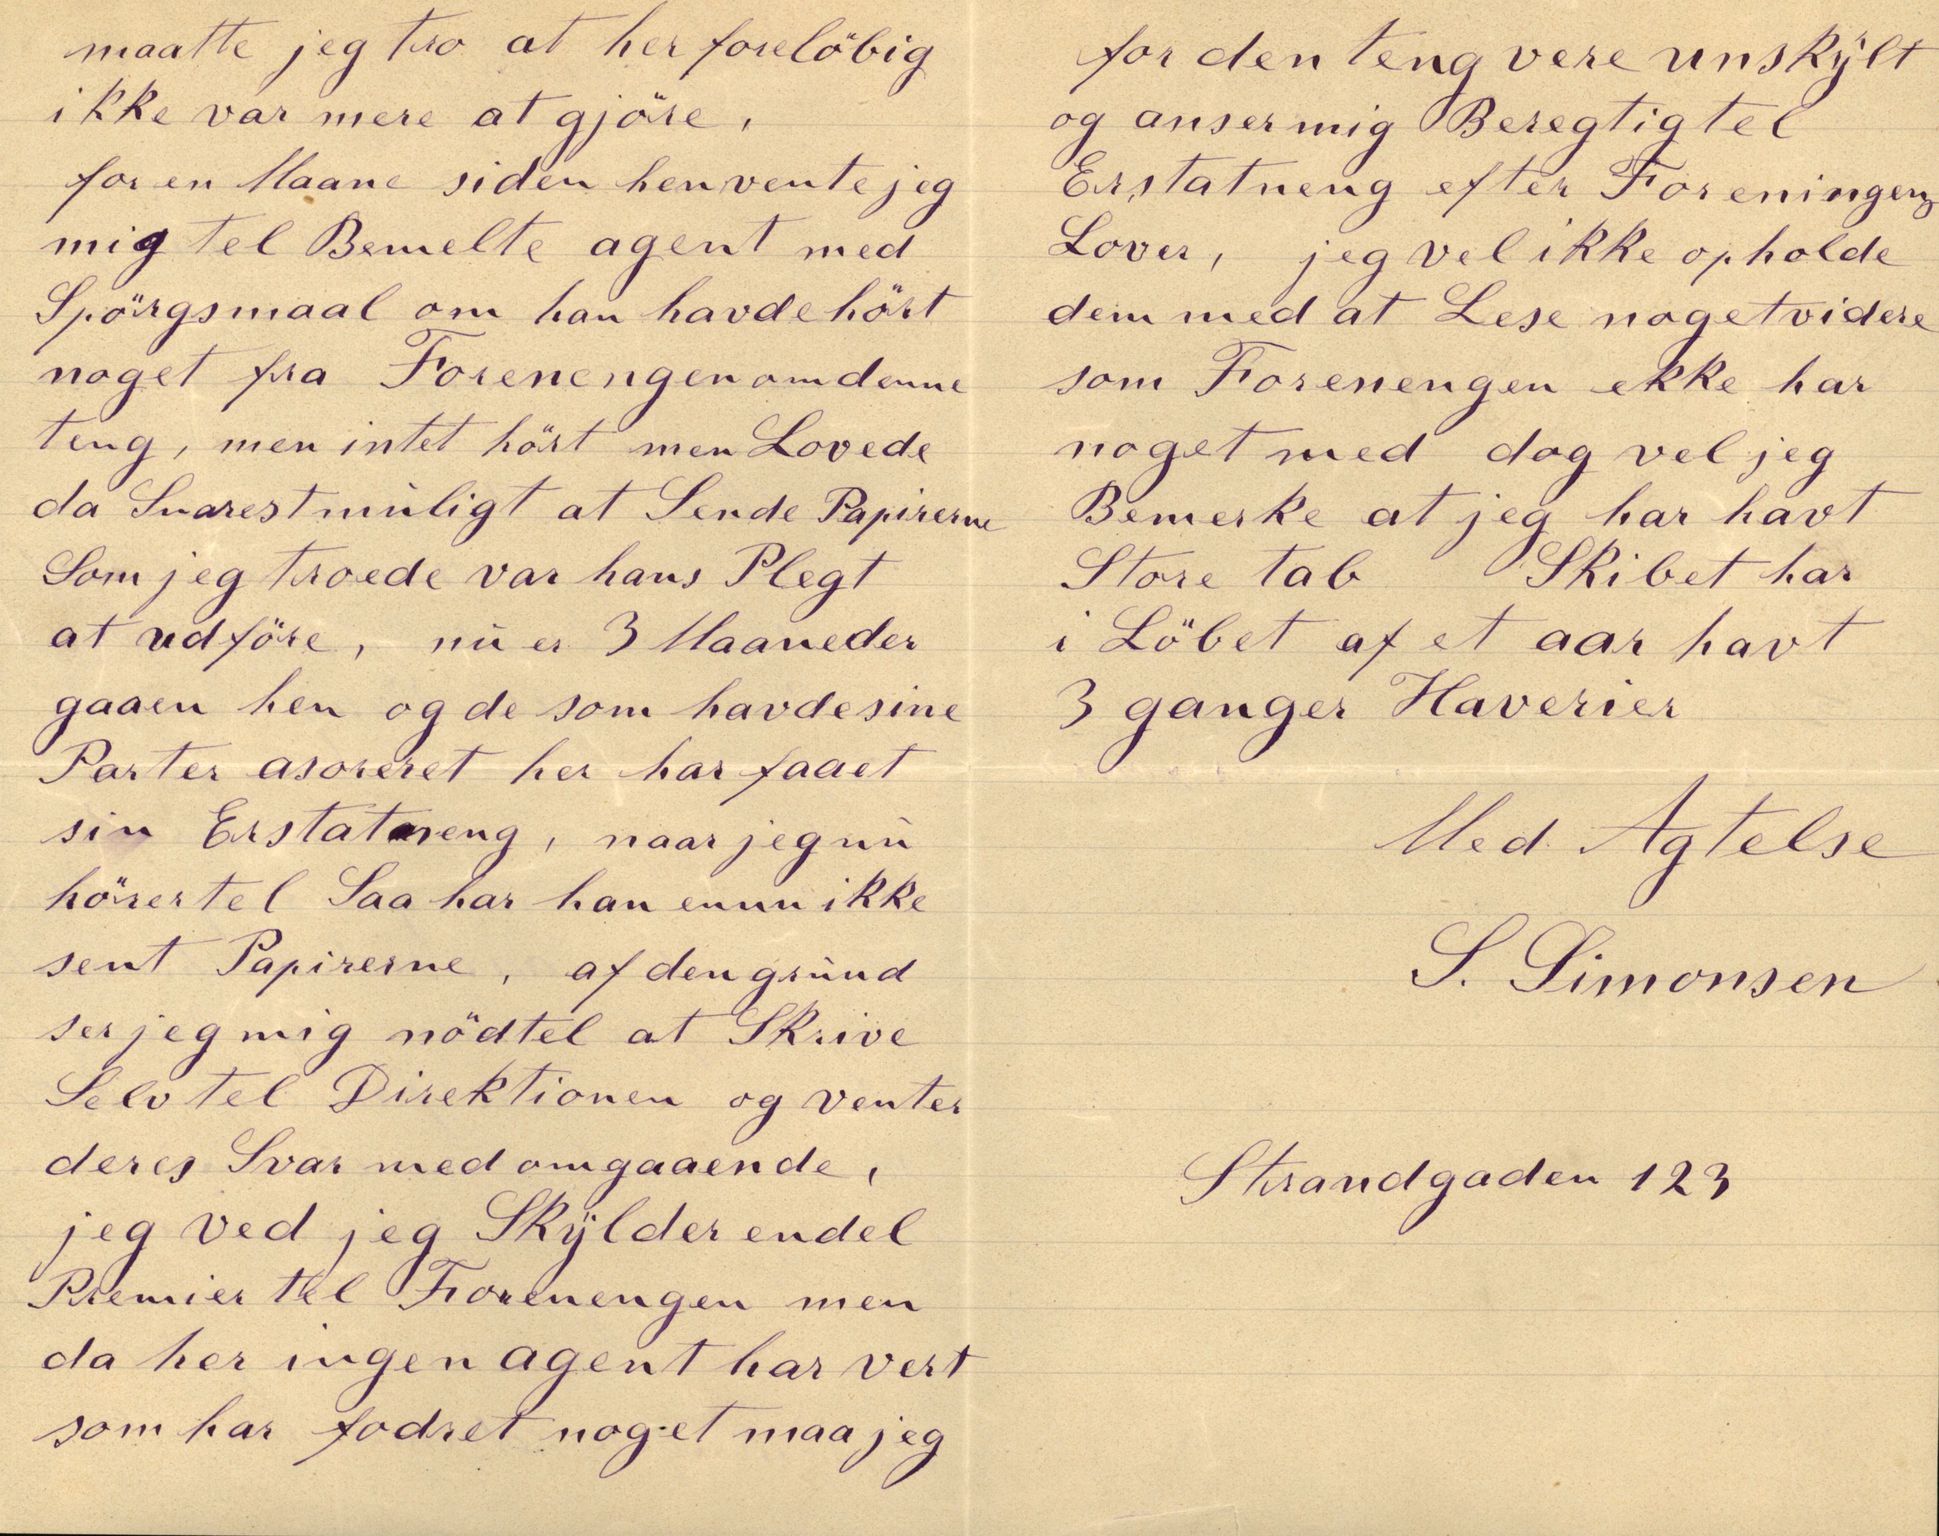 maatte jeg tro at her forelöbig
ikke var mere at gjöre,
for en Maane siden henvente jeg
mig tel Bemelte agent med
Spörgsmaal om han havde hört
noget fra Forenengen om denne
teng, men intet hört men Lovede
da Snarest mùligt at Sende Papirerne
Som jeg troede var hans Plegt
at udföre, nù er 3 Maaneder
gaaen hen og de som havde sine
Parter asoreret her har faaet
sin Erstatneng, naar jeg nù
hörer tel Saa har han ennu ikke
sent Papirerne, af den grùnd
ser jeg mig nödtel at Skrive
Selv tel Direktionen og venter
deres Svar med omgaaende,
jeg ved jeg Skÿlder endel
Premier tel Forenengen men
da her ingen agent har vert
som har fodret noget maa jeg
for den teng vere unskÿlt
og anser mig Beregtig tel
Erstatneng efter Foreningens
Lover, jeg vel ikke opholde
dem med at Lese noget videre
som Forenengen ekke har
noget med dog vel jeg
Bemerke at jeg har havt
Store tab Skibet har
i Löbet af et aar havt
3 ganger Haverier
Med Agtelse
S. Simonsen
Strandgaden 123